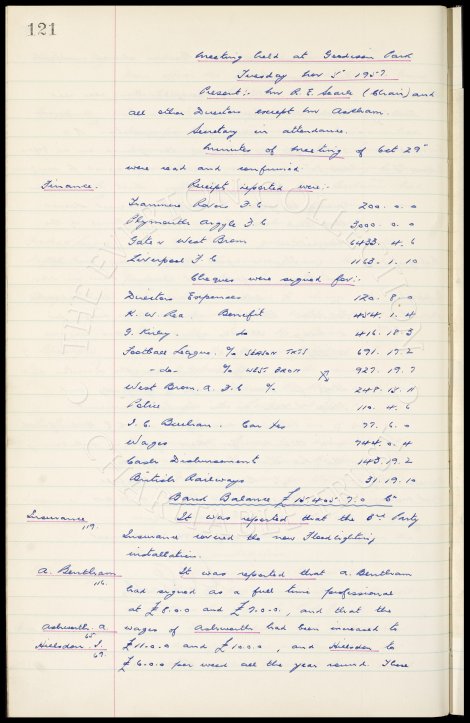 121
Meeting held at Goodison Park
Tuesday Nov 5" 1957.
Present:- Mr R. E. Searle (Chair) and
all other Directors except Mr Askham.
Secretary in attendance.
Minutes of Meeting of Oct 29"
were read and confirmed
Finance. Receipts reported were:-
Tranmere Rovers F.C 200.0.0
Plymouth Argyle F.C 3000.0.0
Gate v West Brom 6433.4.6
Liverpool F.C 1163.1.10
Cheques were signed for:-
Directors Expenses 120.8.0
K. W. Rea. Benefit 454.1.4
G. Kirby. do 416.18.3
Football League. % SEASON TKTS 691.17.2
-do- % WEST BROM 927.19.7
West Brom. A. F.C % 248.13.11
Police 110.4.6
Car Tax 77.6.0
Wages 744.0.4
Cash Disbursement 143.19.2
British Railways 31.19.10
Bank Balance £15405.7.0
Insurance 119. It was reported that the 3rd Party
Insurance covered the new Floodlighting
installation.
A. Bentham 116. It was reported that A. Bentham
had signed as a full time professional
at £8.0.0 and £7.0.0., and that the
Ashworth A. 65 wages of Ashworth had been increased to
Hillsdon J. 69. £11.0.0 and £10.0.0, and Hillsdon to
£6.0.0 per week all the year round. These
THE EVERTON COLLECTION
CHARITABLE